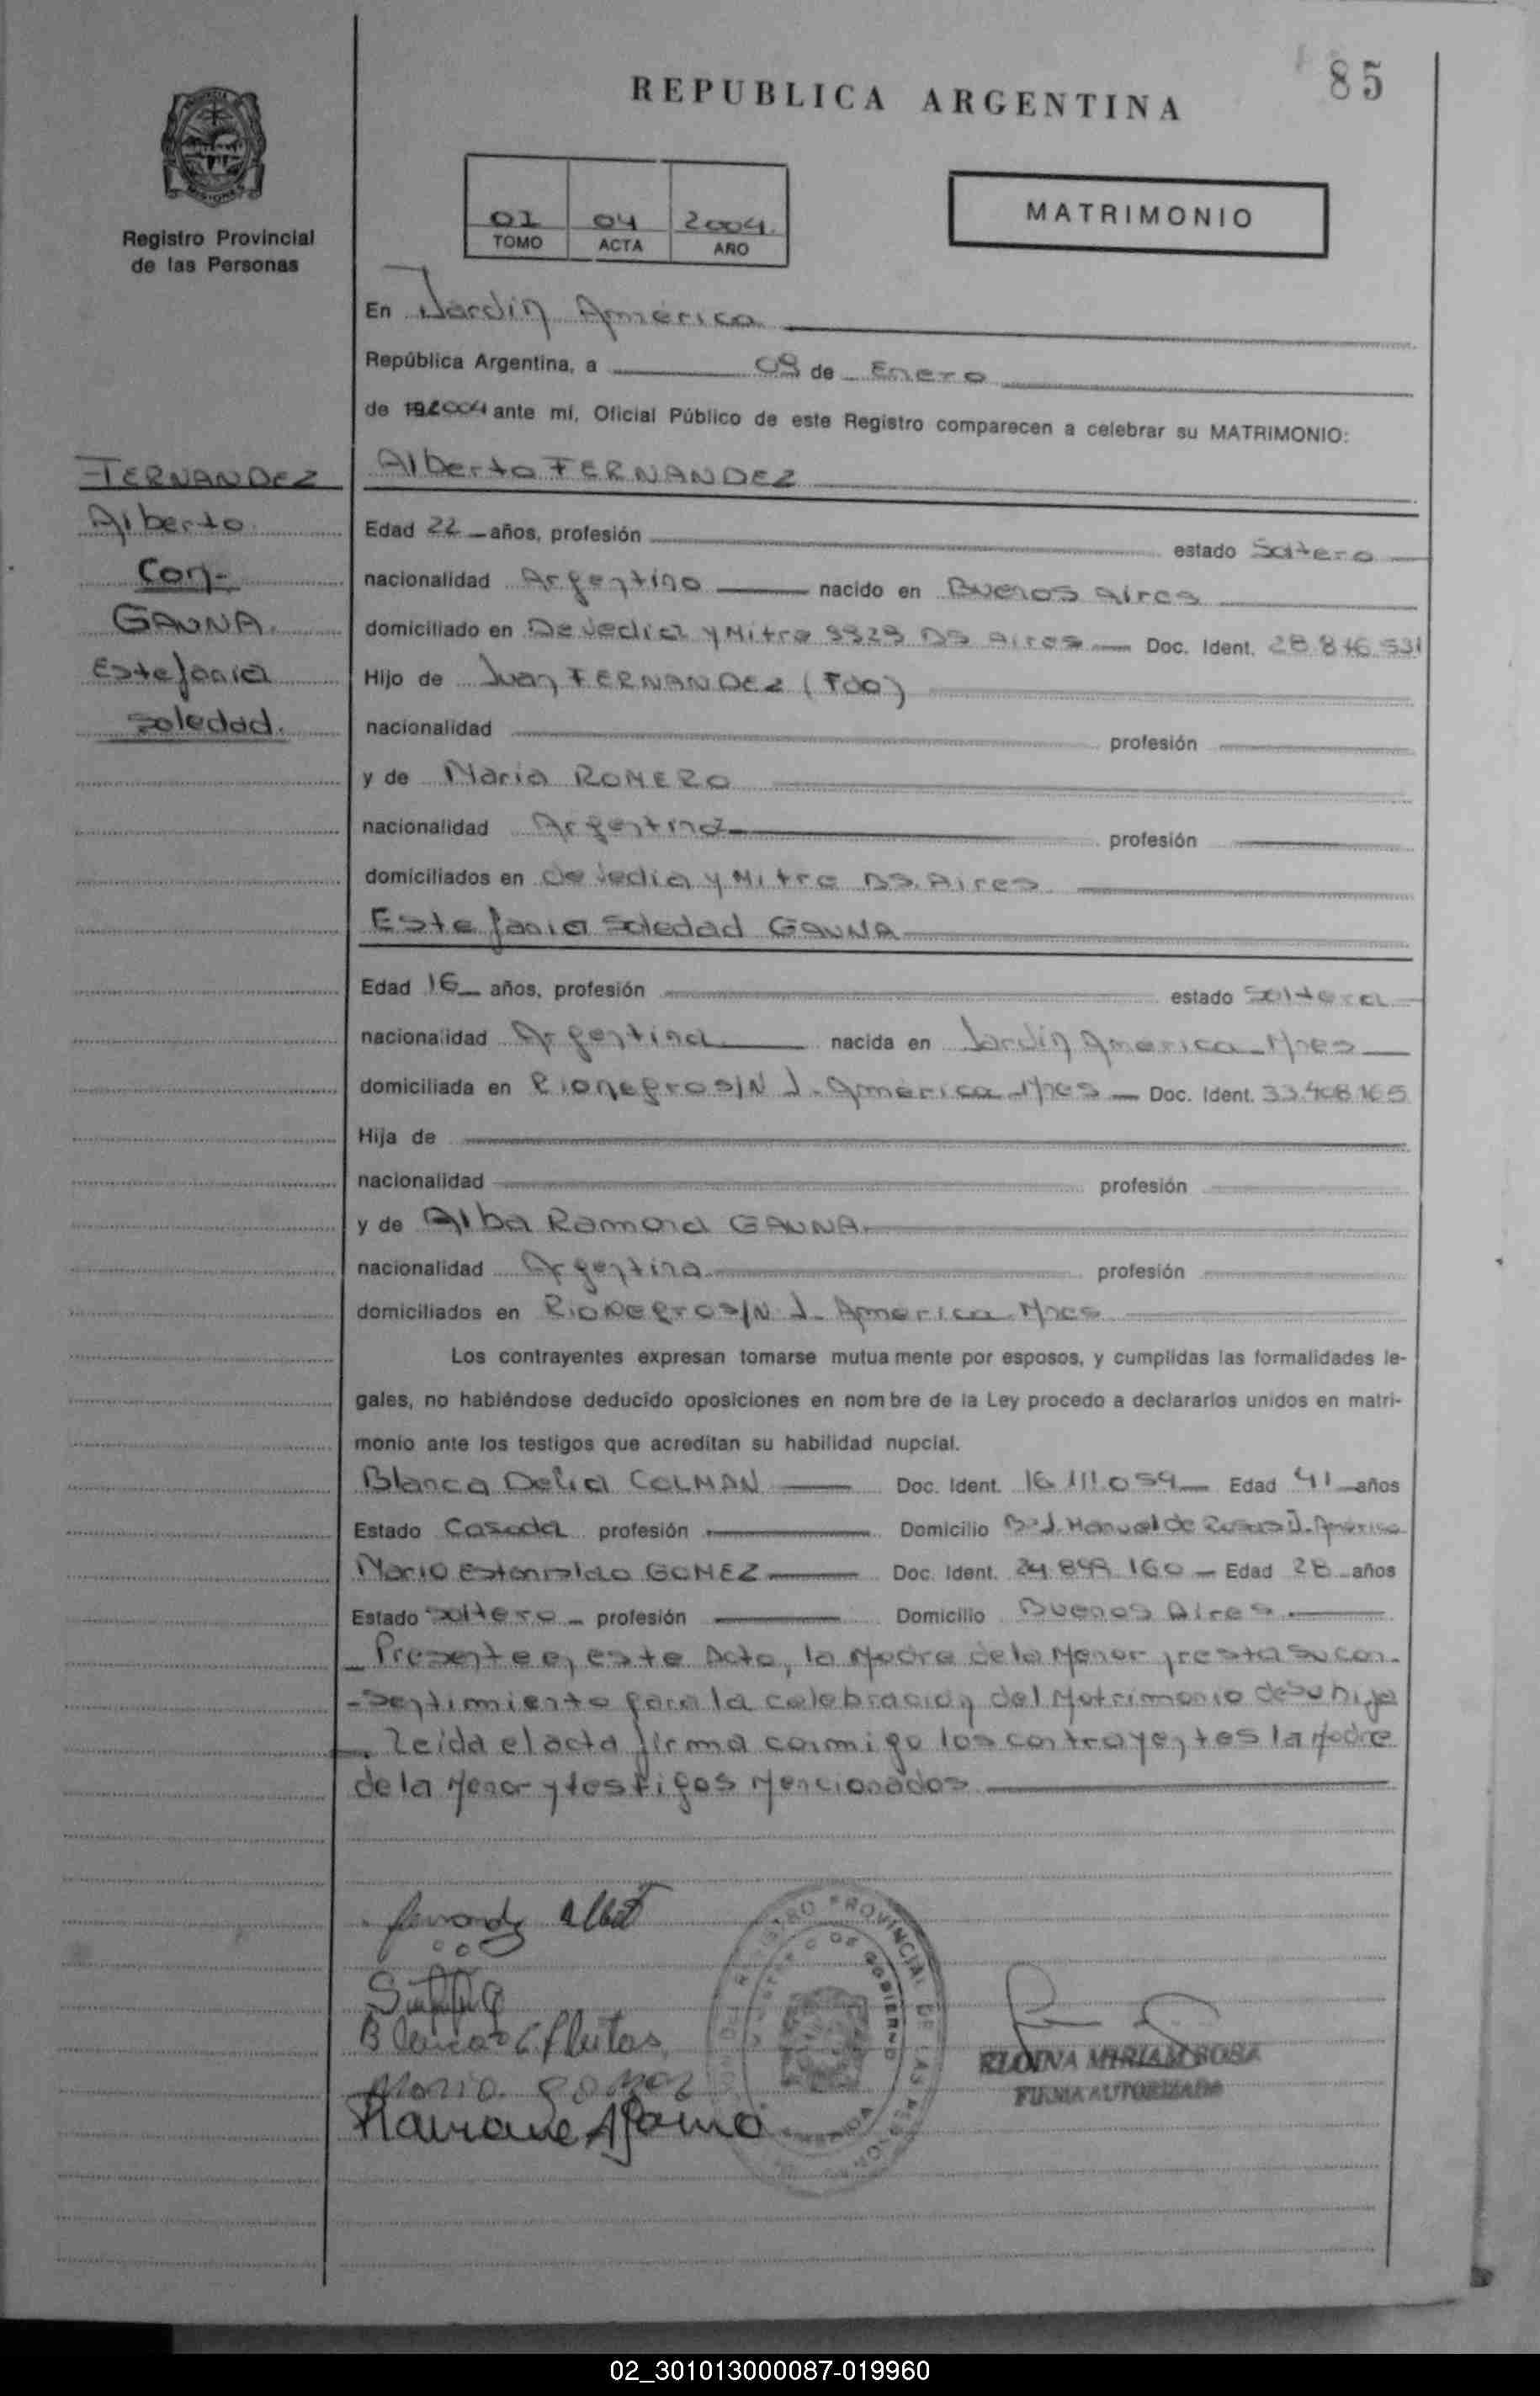 85
REPUBLICA ARGENTINA
MISIONES
Registro Provincial
de las Personas
01 04 2004
TOMO ACTA AÑO
MATRIMONIO
En Jardín América
República Argentina, a 09 de Enero
de 2004 ante mí, Oficial Público de este Registro comparecen a celebrar su MATRIMONIO:
FERNANDEZ
Alberto
Con-
GAUNA
Estefania
Soledad.
Alberto FERNANDEZ
Edad 22 años, profesión estado Soltero
nacionalidad Argentino nacido en Buenos Aires
domiciliado en De Vedia y Mitre 3329 BS Aires Doc. Ident. 28.846.531
Hijo de Juan FERNANDEZ (Fdo)
nacionalidad profesión
y de Maria ROMERO
nacionalidad Argentina profesión
domiciliados en de Vedia y Mitre BS. Aires
Estefania Soledad GAUNA
Edad 16 años, profesión estado Soltera
nacionalidad Argentina nacida en Jardín América - Mnes
domiciliada en Rio Negro S/N J. América - Mnes Doc. Ident. 33.408.165
Hija de
nacionalidad profesión
y de Alba Ramona GAUNA
nacionalidad Argentina profesión
domiciliados en Rio Negro S/N J. America - Mnes
Los contrayentes expresan tomarse mutuamente por esposos, y cumplidas las formalidades le-
gales, no habiéndose deducido oposiciones en nombre de la Ley procedo a declararlos unidos en matri-
monio ante los testigos que acreditan su habilidad nupcial.
Blanca Delia COLMAN Doc. Ident. 16.111.059 Edad 41 años
Estado Casada profesión Domicilio B° J. Manuel de Rosas J. América
Mario Estanislao GOMEZ Doc. Ident. 24.849.160 Edad 28 años
Estado Soltero profesión Domicilio Buenos Aires
Presente en este Acto, la Madre de la Menor presta su con-
-sentimiento para la celebración del Matrimonio de su hija
Leida el acta firma conmigo los contrayentes la Madre
de la Menor y testigos Mencionados
REGISTRO PROVINCIAL DE LAS PERSONAS
MINISTERIO DE GOBIERNO
MIRIAM SOSA
FIRMA AUTORIZADA
02_301013000087-019960